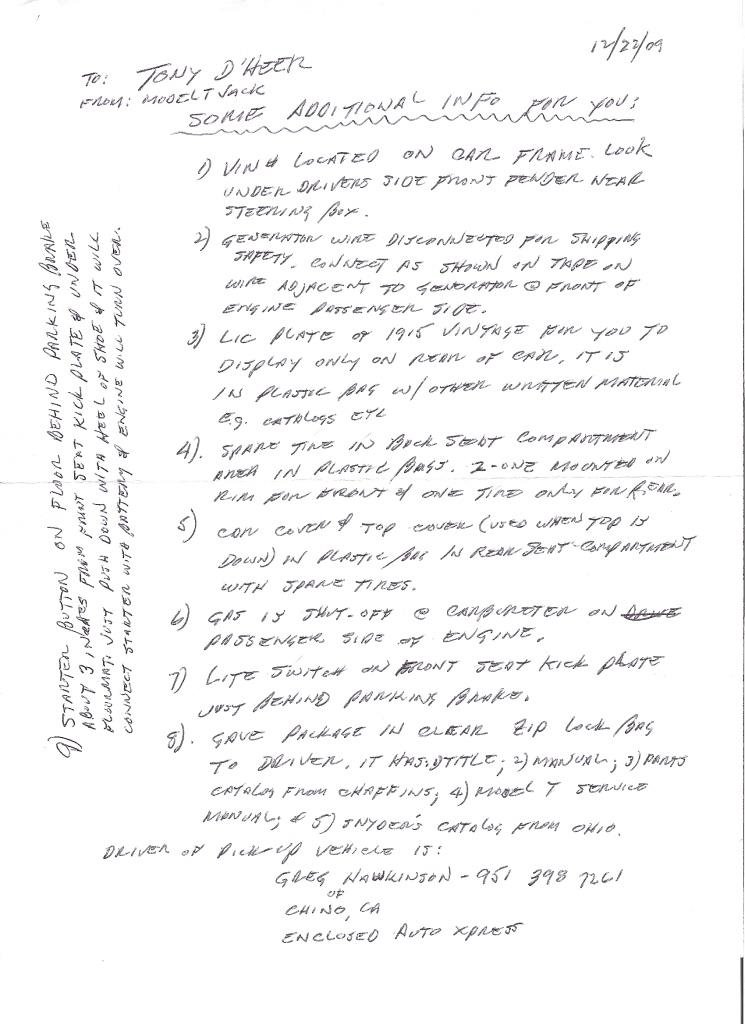 12/22/09
TO: TONY D'HEER
FROM: MODEL T JACK
SOME ADDITIONAL INFO FOR YOU:
1) VIN # LOCATED ON CAR FRAME. LOOK
UNDER DRIVERS SIDE FRONT FENDER NEAR
STEERING BOX.
2) GENERATOR WIRE DISCONNECTED FOR SHIPPING
SAFETY. CONNECT AS SHOWN ON TAPE ON
WIRE ADJACENT TO GENERATOR @ FRONT OF
ENGINE PASSENGER SIDE.
3) LIC PLATE OF 1915 VINTAGE FOR YOU TO
DISPLAY ONLY ON REAR OF CAR. IT IS
IN PLASTIC BAG W/ OTHER WRITTEN MATERIAL
E.g. CATALOGS ETC
4). SPARE TIRE IN BACK SEAT COMPARTMENT
AREA IN PLASTIC BAGS. 2-ONE MOUNTED ON
RIM FOR FRONT & ONE TIRE ONLY FOR REAR.
5) CAR COVER & TOP COVER (USED WHEN TOP IS
DOWN) IN PLASTIC BAG IN REAR SEAT COMPARTMENT
WITH SPARE TIRES.
6) GAS IS SHUT-OFF @ CARBURETER ON DRIVE
PASSENGER SIDE OF ENGINE.
7) LITE SWITCH ON FRONT SEAT KICK PLATE
JUST BEHIND PARKING BRAKE.
8). GAVE PACKAGE IN CLEAR ZIP LOCK BAG
TO DRIVER. IT HAS: 1) TITLE; 2) MANUAL; 3) PARTS
CATALOG FROM CHAFFINS; 4) MODEL T SERVICE
MANUAL; & 5) SNYDER'S CATALOG FROM OHIO.
DRIVER OF PICK-UP VEHICLE IS:
GREG HAWKINSON - 951 398 7261
OF
CHINO, CA
ENCLOSED AUTO XPRESS
9) STARTER BUTTON ON FLOOR BEHIND PARKING BRAKE
ABOUT 3 INCHES FROM FRONT SEAT KICK PLATE & UNDER
FLOORMAT. JUST PUSH DOWN WITH HEEL OF SHOE & IT WILL
CONNECT STARTER WITH BATTERY & ENGINE WILL TURN OVER.